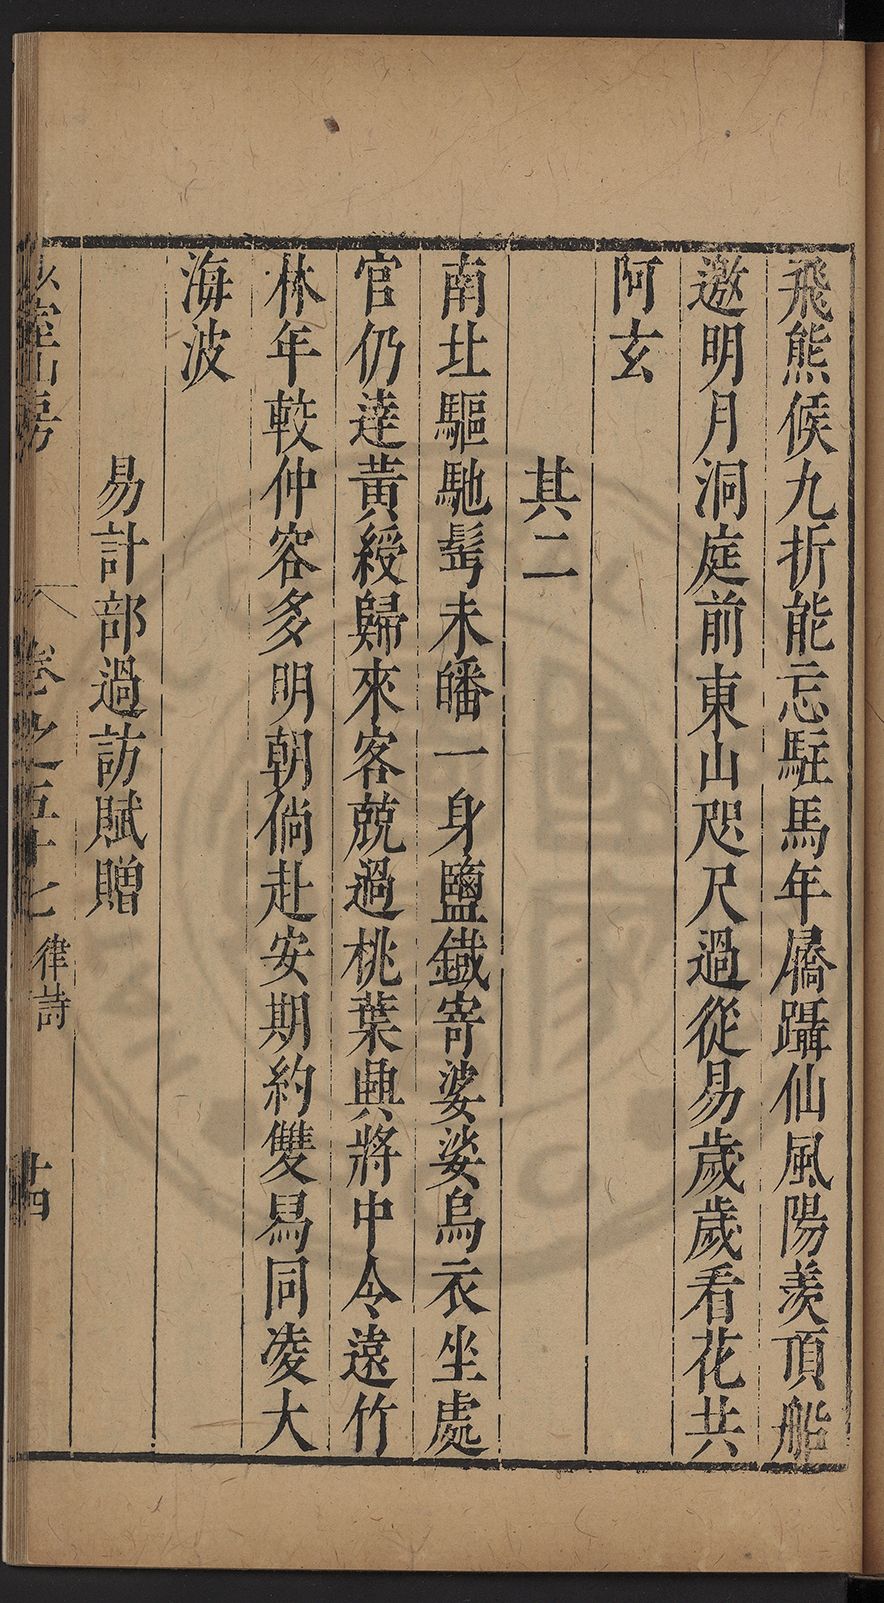 飛熊候九折能忘駐馬年屩躡仙風陽羨頂船
邀明月洞庭前東山咫尺過從易歲歲看花共
阿玄
其二
南北驅馳髩未皤一身鹽鐵寄婆娑烏衣坐處
官仍達黃綬歸來客兢過桃葉興將中令遠竹
林年較仲容多明朝倘赴安期約雙舄同凌大
海波
易計部過訪賦贈
室山房
卷之五十七
律詩
十四